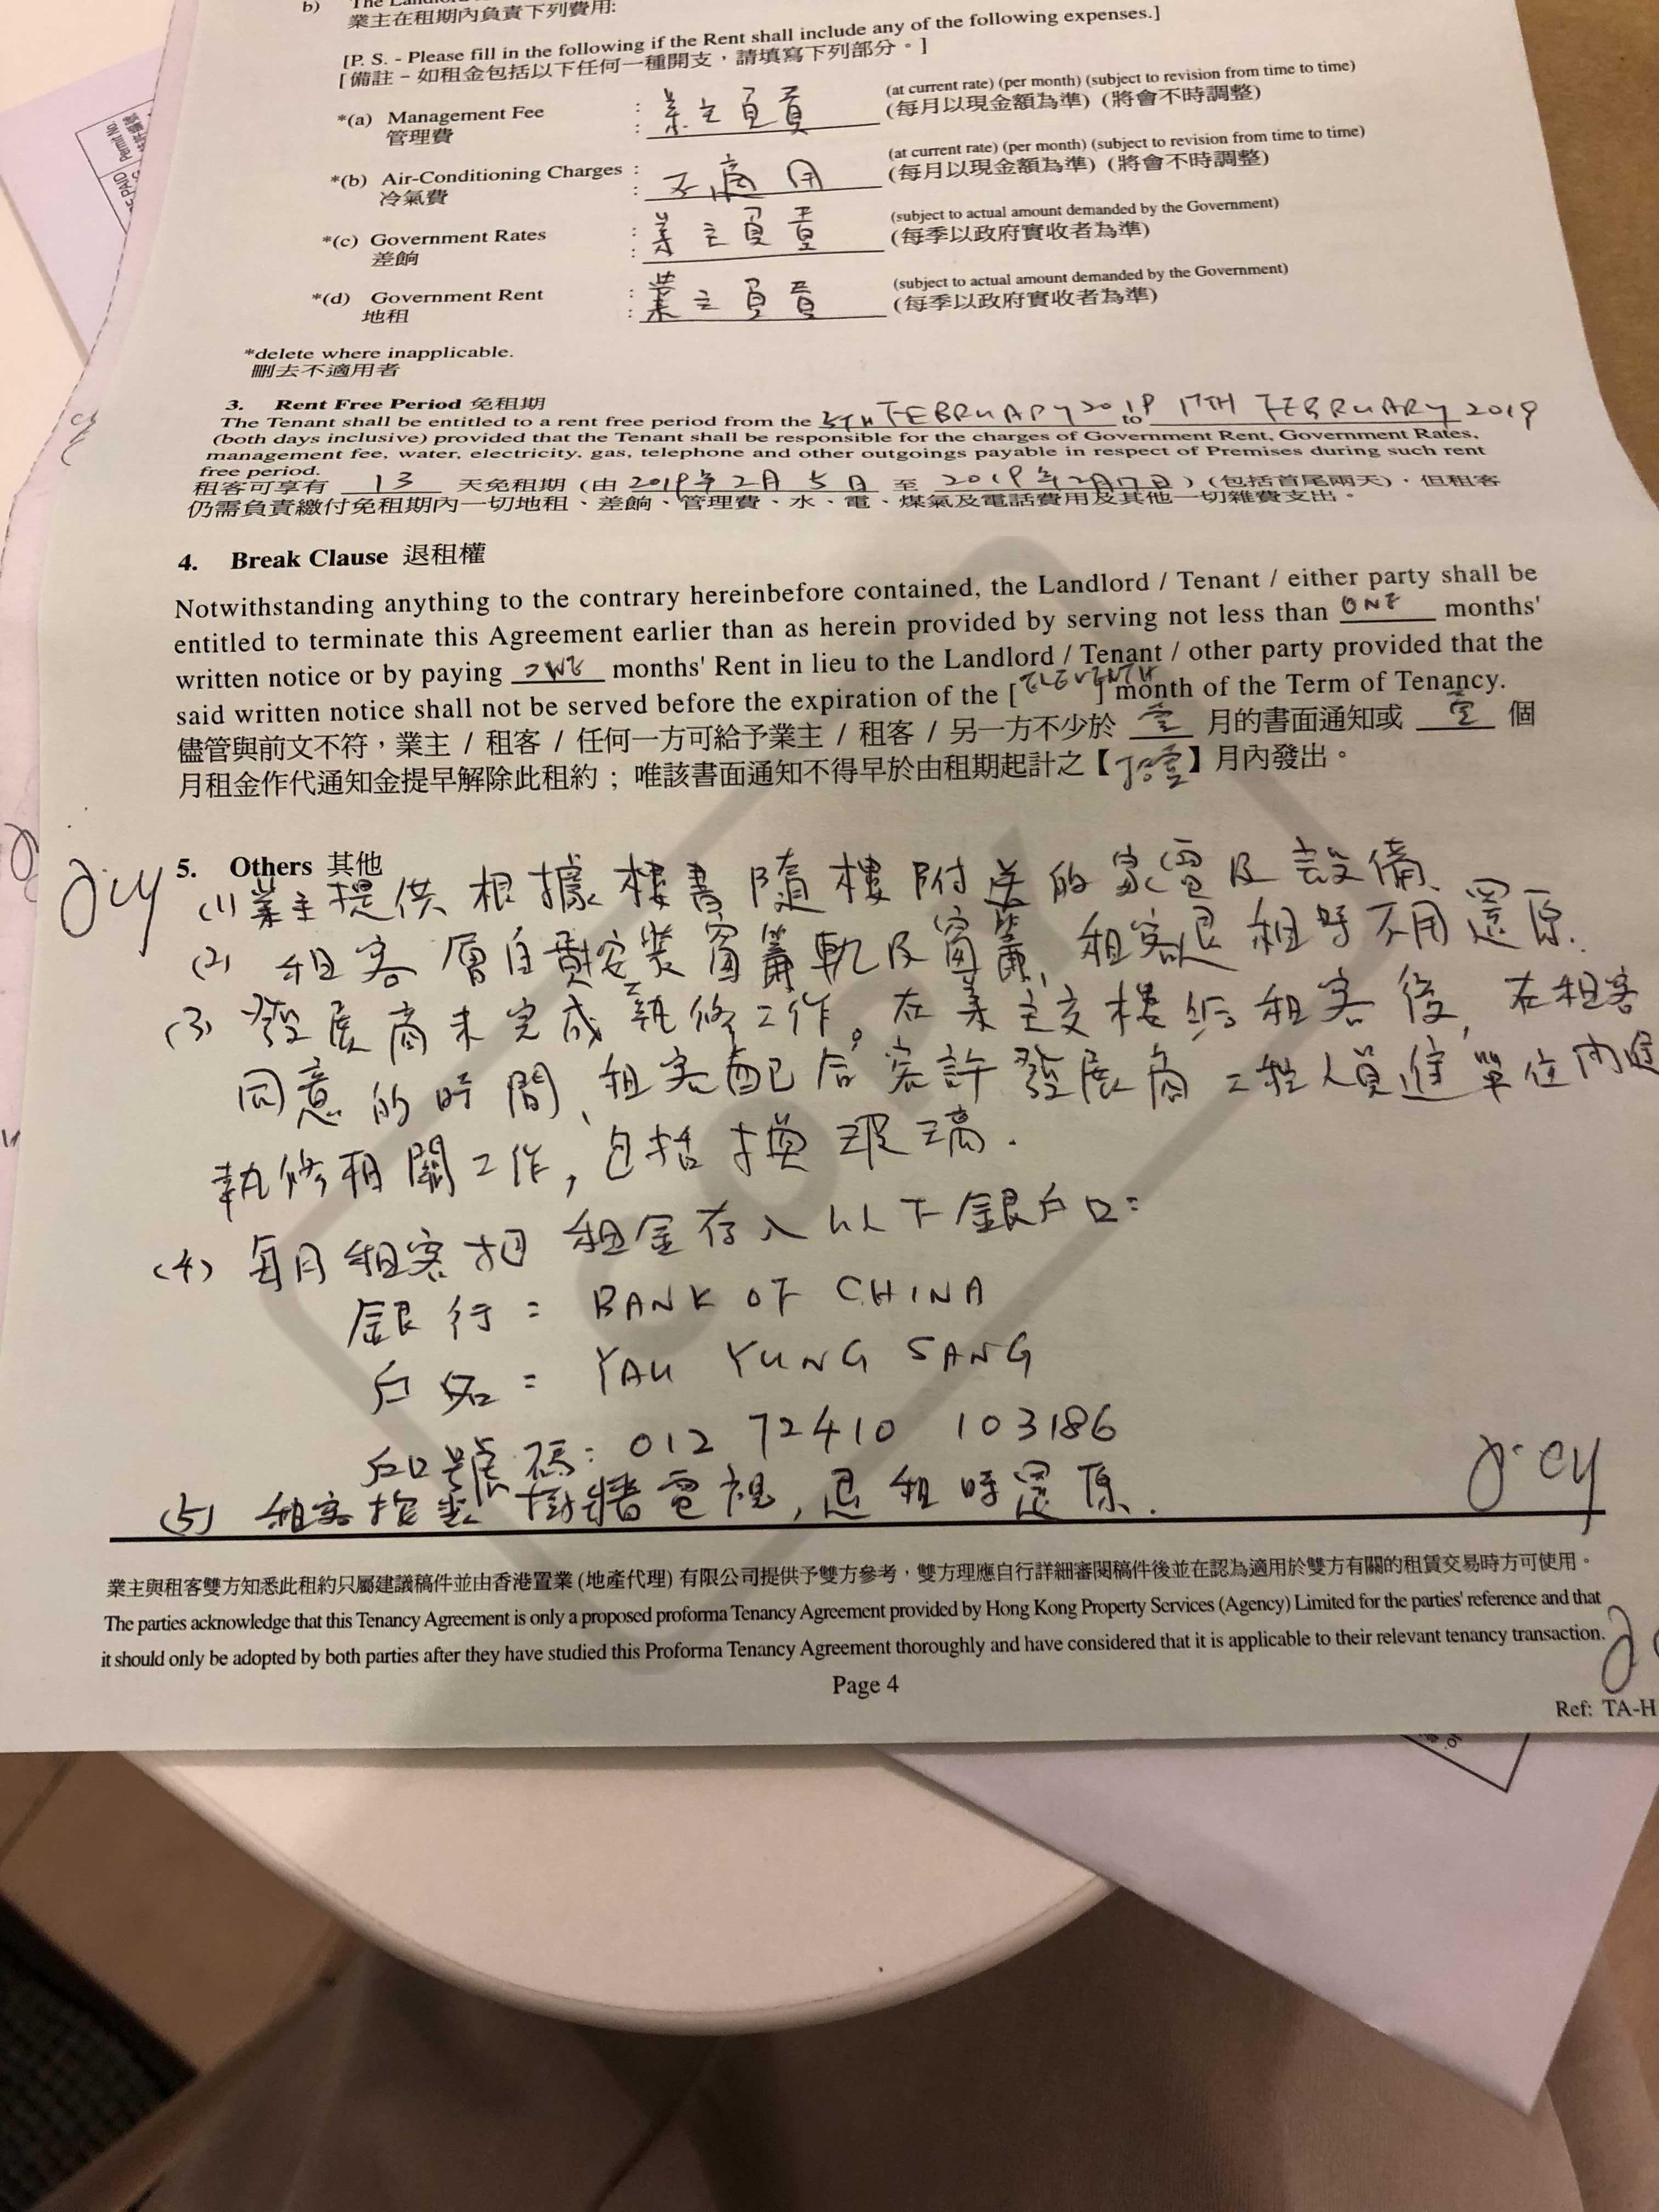 b)
業主在租期內負責下列費用:
[P. S. - Please fill in the following if the Rent shall include any of the following expenses.]
[備註 - 如租金包括以下任何一種開支，請填寫下列部分。]
*(a) Management Fee : 業主負責 (at current rate) (per month) (subject to revision from time to time)
管理費 : (每月以現金額為準) (將會不時調整)
*(b) Air-Conditioning Charges : 不適用 (at current rate) (per month) (subject to revision from time to time)
冷氣費 : (每月以現金額為準) (將會不時調整)
*(c) Government Rates : 業主負責 (subject to actual amount demanded by the Government)
差餉 : (每季以政府實收者為準)
*(d) Government Rent : 業主負責 (subject to actual amount demanded by the Government)
地租 : (每季以政府實收者為準)
*delete where inapplicable.
刪去不適用者
3. Rent Free Period 免租期
The Tenant shall be entitled to a rent free period from the 5TH FEBRUARY 2019 to 17TH FEBRUARY 2019
(both days inclusive) provided that the Tenant shall be responsible for the charges of Government Rent, Government Rates,
management fee, water, electricity, gas, telephone and other outgoings payable in respect of Premises during such rent
free period.
租客可享有 13 天免租期 (由 2019年2月5日 至 2019年2月17日) (包括首尾兩天)，但租客
仍需負責繳付免租期內一切地租、差餉、管理費、水、電、煤氣及電話費用及其他一切雜費支出。
4. Break Clause 退租權
Notwithstanding anything to the contrary hereinbefore contained, the Landlord / Tenant / either party shall be
entitled to terminate this Agreement earlier than as herein provided by serving not less than ONE months'
written notice or by paying ONE months' Rent in lieu to the Landlord / Tenant / other party provided that the
said written notice shall not be served before the expiration of the [ELEVENTH] month of the Term of Tenancy.
儘管與前文不符，業主 / 租客 / 任何一方可給予業主 / 租客 / 另一方不少於 壹 月的書面通知或 壹 個
月租金作代通知金提早解除此租約；唯該書面通知不得早於由租期起計之【拾壹】月內發出。
5. Others 其他
(1) 業主提供根據樓書隨樓附送的家電及設備、
(2) 租客 自費安裝窗簾軌及窗簾、租客退租時不用還原.
(3) 發展商未完成執修工作。在業主交樓給租客後, 在租客
同意的時間、租客配合容許發展商工程人員進單位內
執修相關工作, 包括換玻璃.
(4) 每月租客把租金存入以下銀戶口:
銀行: BANK OF CHINA
戶名: YAU YUNG SANG
戶口號碼: 012 72410 103186
(5) 租客 掛牆電視, 退租時還原.
業主與租客雙方知悉此租約只屬建議稿件並由香港置業 (地產代理) 有限公司提供予雙方參考，雙方理應自行詳細審閱稿件後並在認為適用於雙方有關的租賃交易時方可使用。
The parties acknowledge that this Tenancy Agreement is only a proposed proforma Tenancy Agreement provided by Hong Kong Property Services (Agency) Limited for the parties' reference and that
it should only be adopted by both parties after they have studied this Proforma Tenancy Agreement thoroughly and have considered that it is applicable to their relevant tenancy transaction.
Page 4
Ref: TA-H
COPY
Permit No.